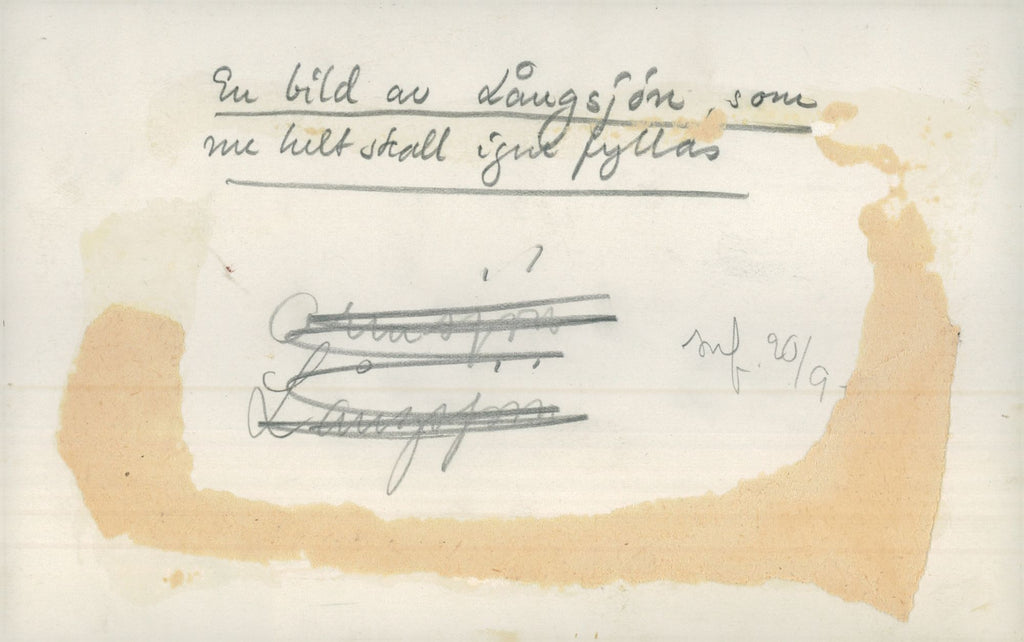 En bild av Långsjön, som
nu helt skall igen fyllas
Långsjön
inf. 20/9.